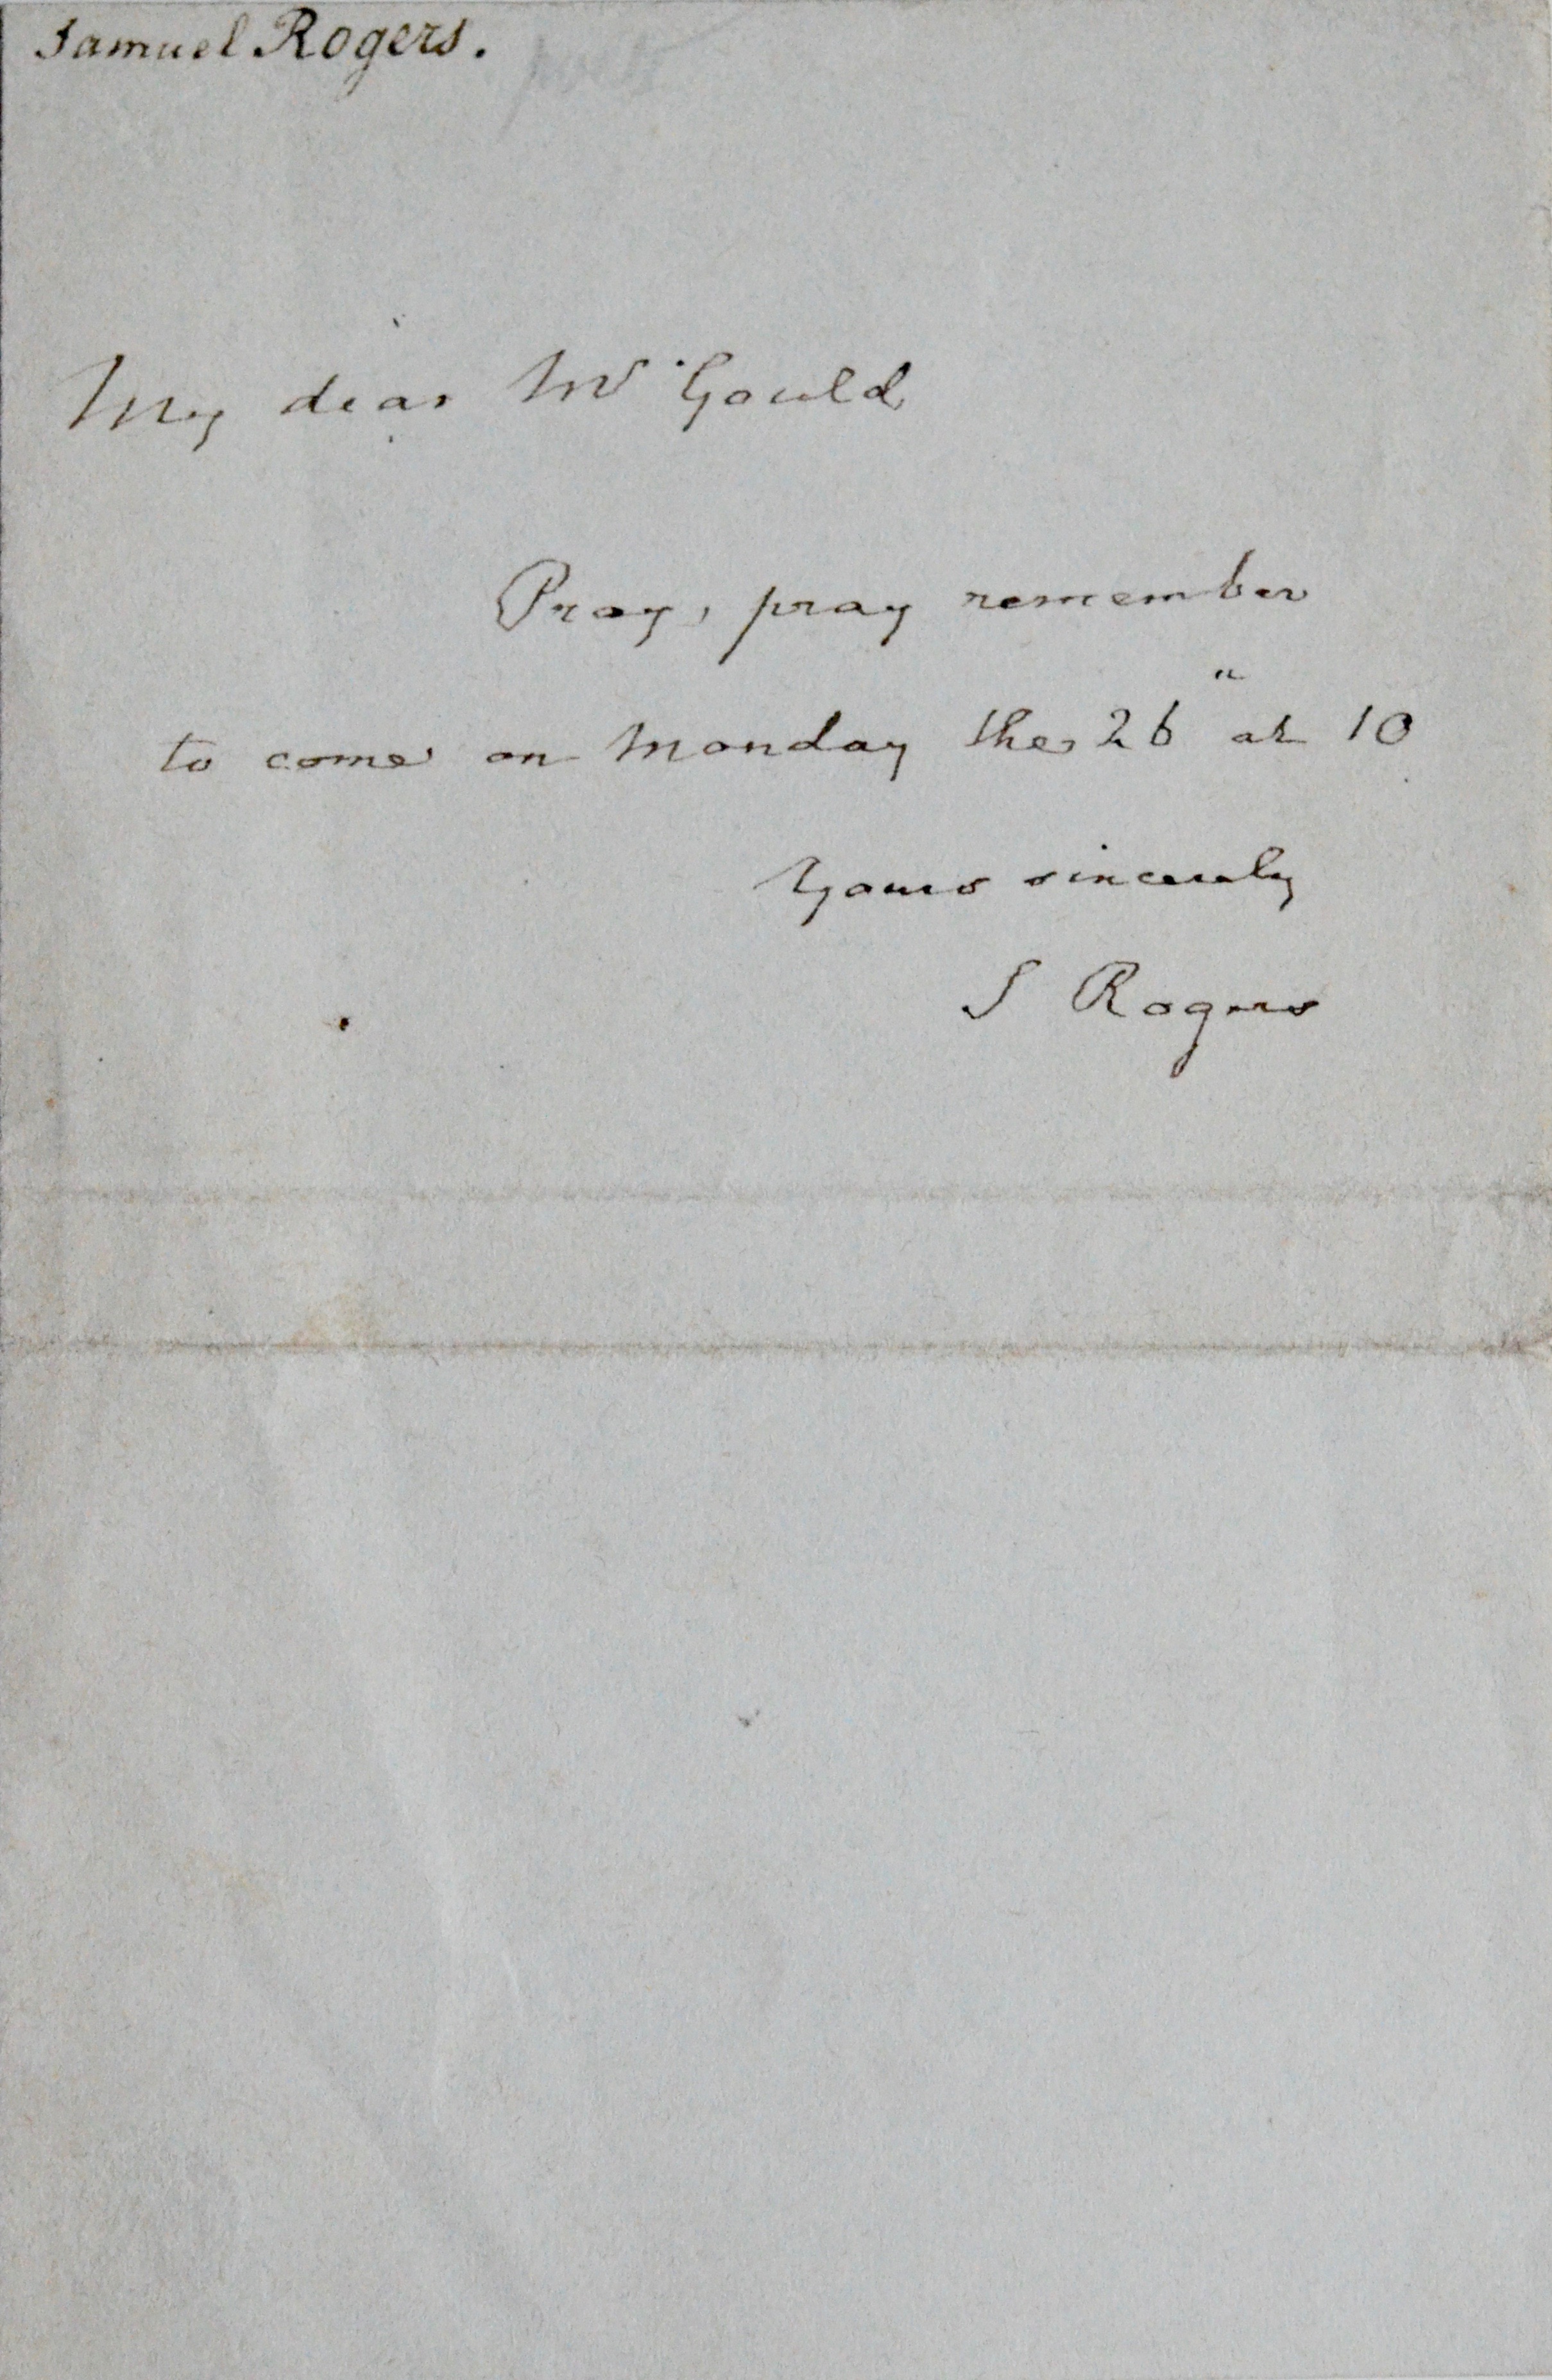 Samuel Rogers.
My dear Mr Gould
Pray, pray remember
to come on Monday the 26" at 10
Yours sincerely
S Rogers